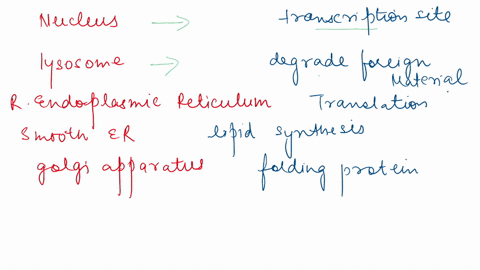 Nucleus → transcription site
lysosome → degrade foreign
Material
R. Endoplasmic Reticulum Translation
Smooth ER lipid synthesis
golgi apparatus folding protein